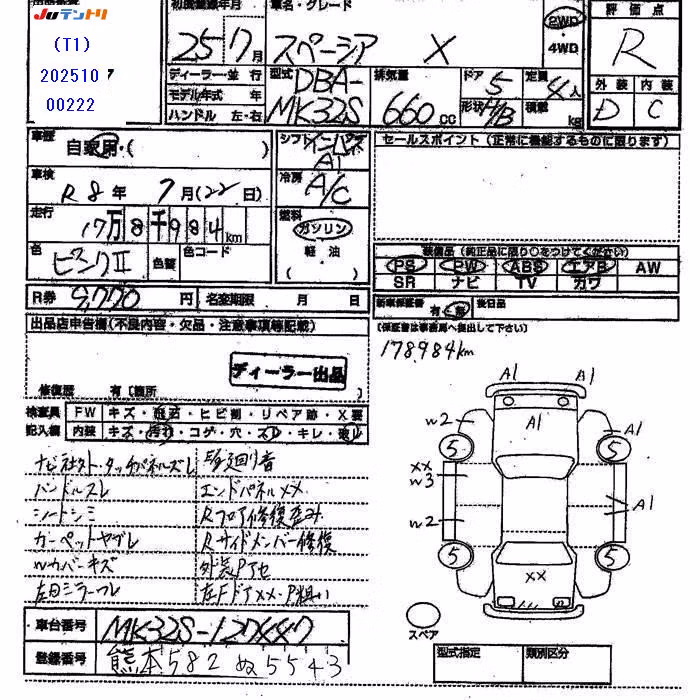 JUテントリ
(T1)
202510 7
00222
初度登録年月
車名・グレード
25 7月
スペーシア X
2WD
・4WD
評価点
R
外装 内装
D C
ディーラー・並行
モデル年式 年
ハンドル 左・右
型式
DBA-
MK32S
排気量
660cc
ドア 5
形状
定員 4人
積載 kg
車歴
自家用・( )
シフト
インパネ
AT
セールスポイント(正常に機能するものに限ります)
車検
R8年 7月(22日)
冷房
A/C
走行
17万8千984km
燃料
ガソリン
軽・油
( ・ )
色
ピンクII
色替
色コード
装備品(純正品に限り○をつけてください)
PS PW ABS エアB AW
SR ナビ TV カワ
R券 9,770円
名変期限 月 日
新車保証書 有・
後日品
(保証書は事務局へ提出して下さい)
178984km
出品店申告欄(不良内容・欠品・注意事項等記載)
ディーラー出品
修復歴 有〔箇所
検査員
記入欄
FW キズ・飛石・ヒビ割・リペア跡・X要
内装 キズ・汚れ・コゲ・穴・スレ・キレ・破レ
ハンドルスレ
エンドパネルXX
シートシミ
Rフロア修復歪み
カーペットヤブレ
Rサイドメンバー修復
Wカバーキズ
左ドミラースレ
左Fドアxx・P粗い
A1 A1
A1
W2
A1
5 5
XX
W3
A1
W2
5 5
XX
スペア
車台番号
登録番号
熊本582ぬ5543
型式指定 類別区分